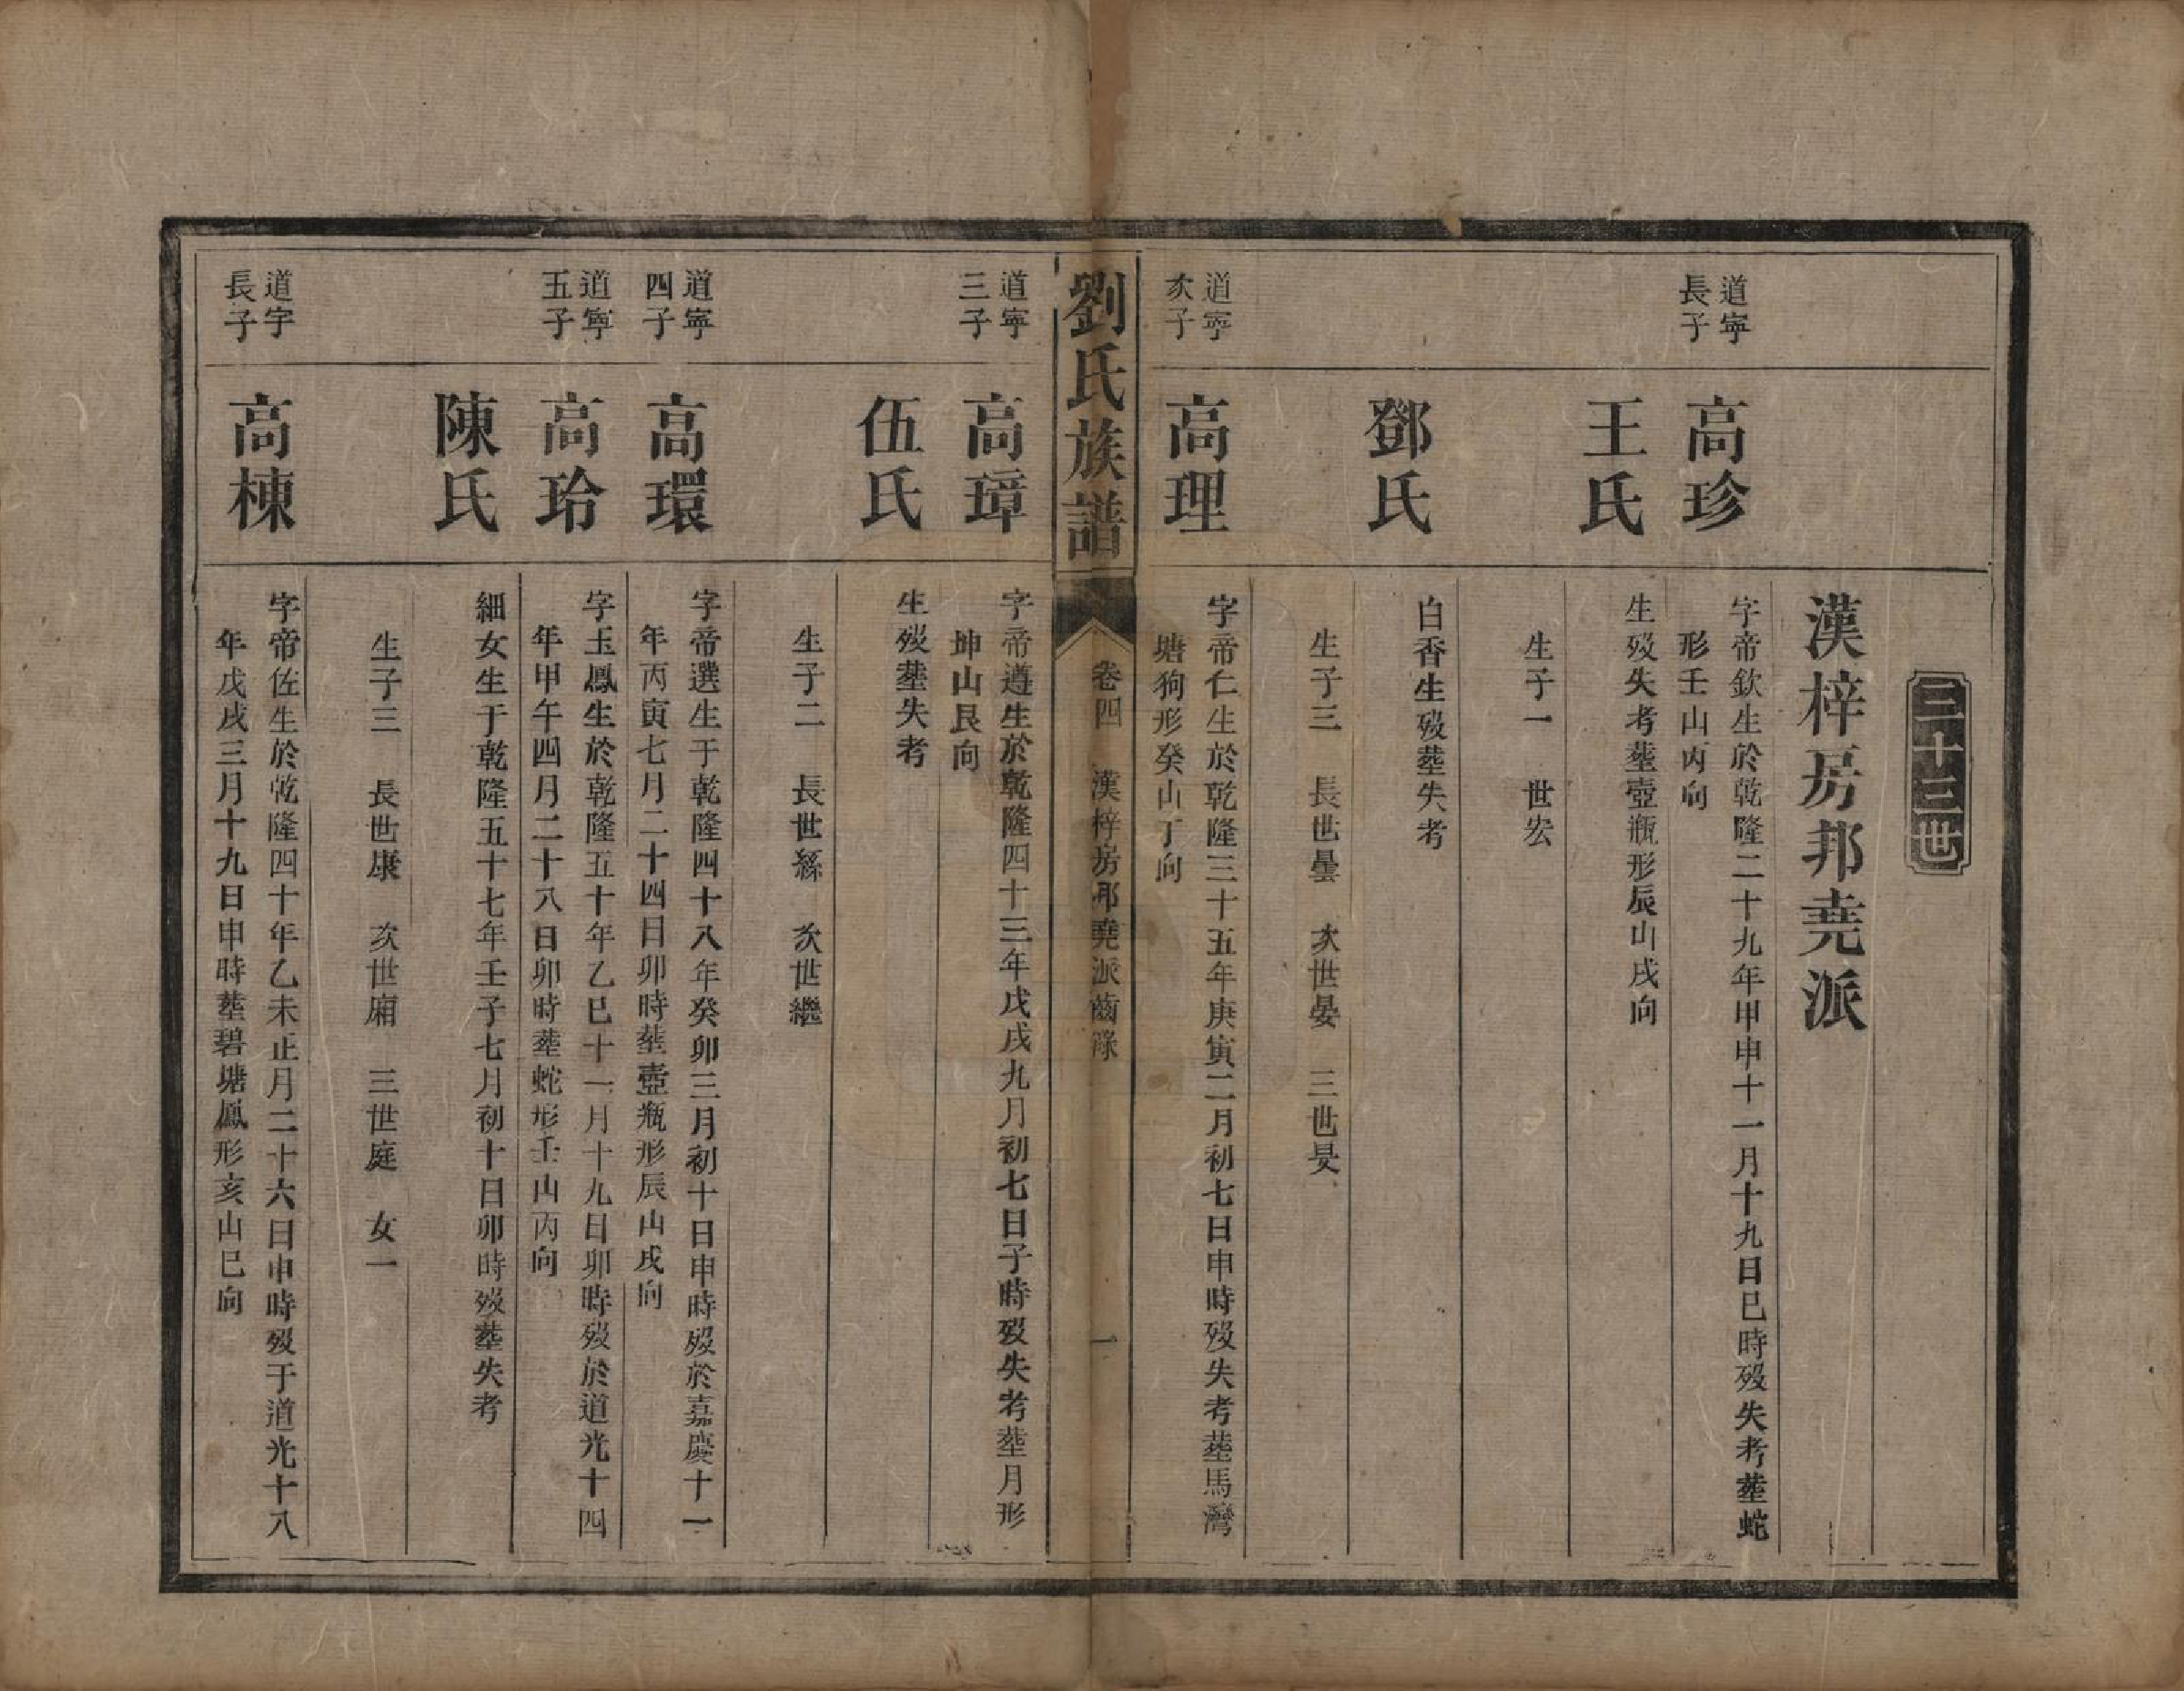 三十三世
漢梓房邦堯派
道寧
長子
高珍
字帝欽生於乾隆二十九年甲申十一月十九日巳時歿失考塟蛇
形壬山丙向
王氏
生歿失考塟壺瓶形辰山戌向
生子一　世宏
鄧氏
白香生歿塟失考
生子三　長世曇　次世晏　三世旻
道寧
次子
高理
字帝仁生於乾隆三十五年庚寅二月初七日申時歿失考塟馬灣
塘狗形癸山丁向
劉氏族譜
卷四　漢梓房邦堯派齒錄
一
道寧
三子
高璋
字帝遵生於乾隆四十三年戊戌九月初七日子時歿失考塟月形
坤山艮向
伍氏
生歿塟失考
生子二　長世繇　次世繼
道寧
四子
高環
字帝選生于乾隆四十八年癸卯三月初十日申時歿於嘉慶十一
年丙寅七月二十四日卯時塟壺瓶形辰山戌向
道寧
五子
高玲
字玉鳳生於乾隆五十年乙巳十一月十九日卯時歿於道光十四
年甲午四月二十八日卯時塟蛇形壬山丙向
陳氏
細女生于乾隆五十七年壬子七月初十日卯時歿塟失考
生子三　長世康　次世廂　三世庭　女一
道宇
長子
高棟
字帝佐生於乾隆四十年乙未正月二十六日申時歿于道光十八
年戊戌三月十九日申時塟碧塘鳳形亥山巳向